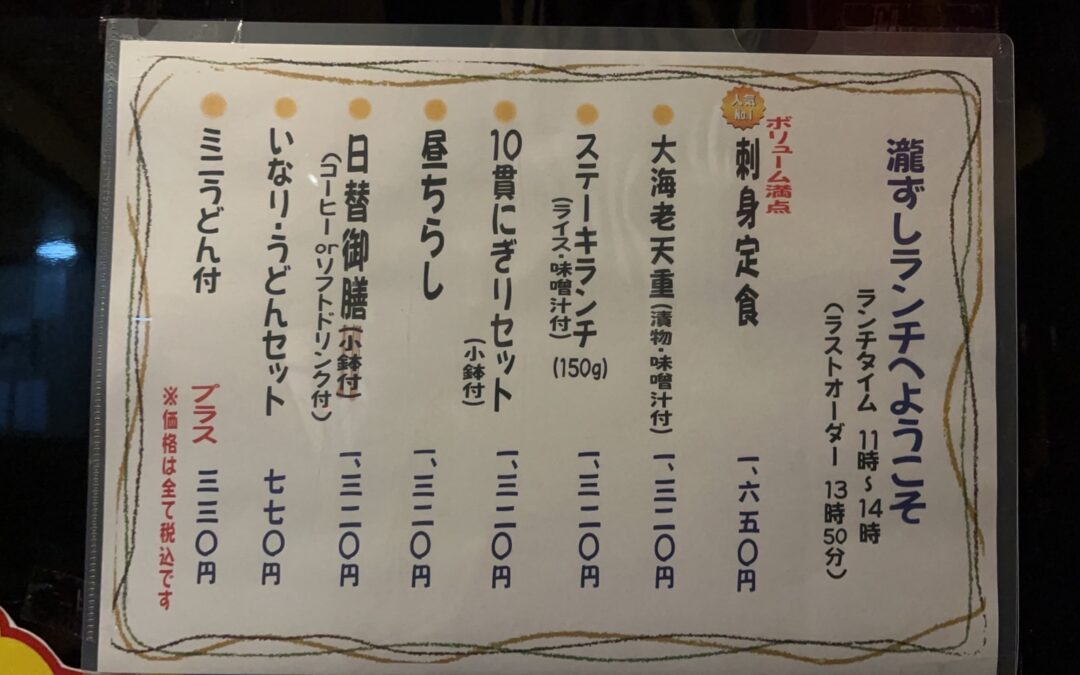 瀧ずしランチへようこそ
ランチタイム 11時~14時
(ラストオーダー 13時50分)
ボリューム満点
人気No.1
刺身定食 一、六五〇円
大海老天重(漬物・味噌汁付) 一、三二〇円
ステーキランチ(150g) 一、三二〇円
(ライス・味噌汁付)
10貫にぎりセット 一、三二〇円
(小鉢付)
昼ちらし 一、三二〇円
日替御膳(小鉢付) 一、三二〇円
(コーヒーorソフトドリンク付)
いなり・うどんセット 七七〇円
ミニうどん付 プラス 三三〇円
※価格は全て税込です